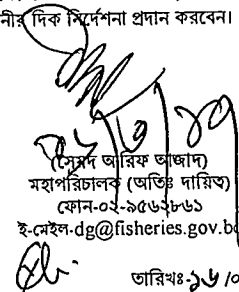 দিক নির্দেশনা প্রদান করবেন।
(সৈয়দ আরিফ আজাদ)
মহাপরিচালক (অতিঃ দায়িত্ব)
ফোন-০২-৯৫৬২৮৬১
ই-মেইল-dg@fisheries.gov.bd
তারিখঃ-১৬/০